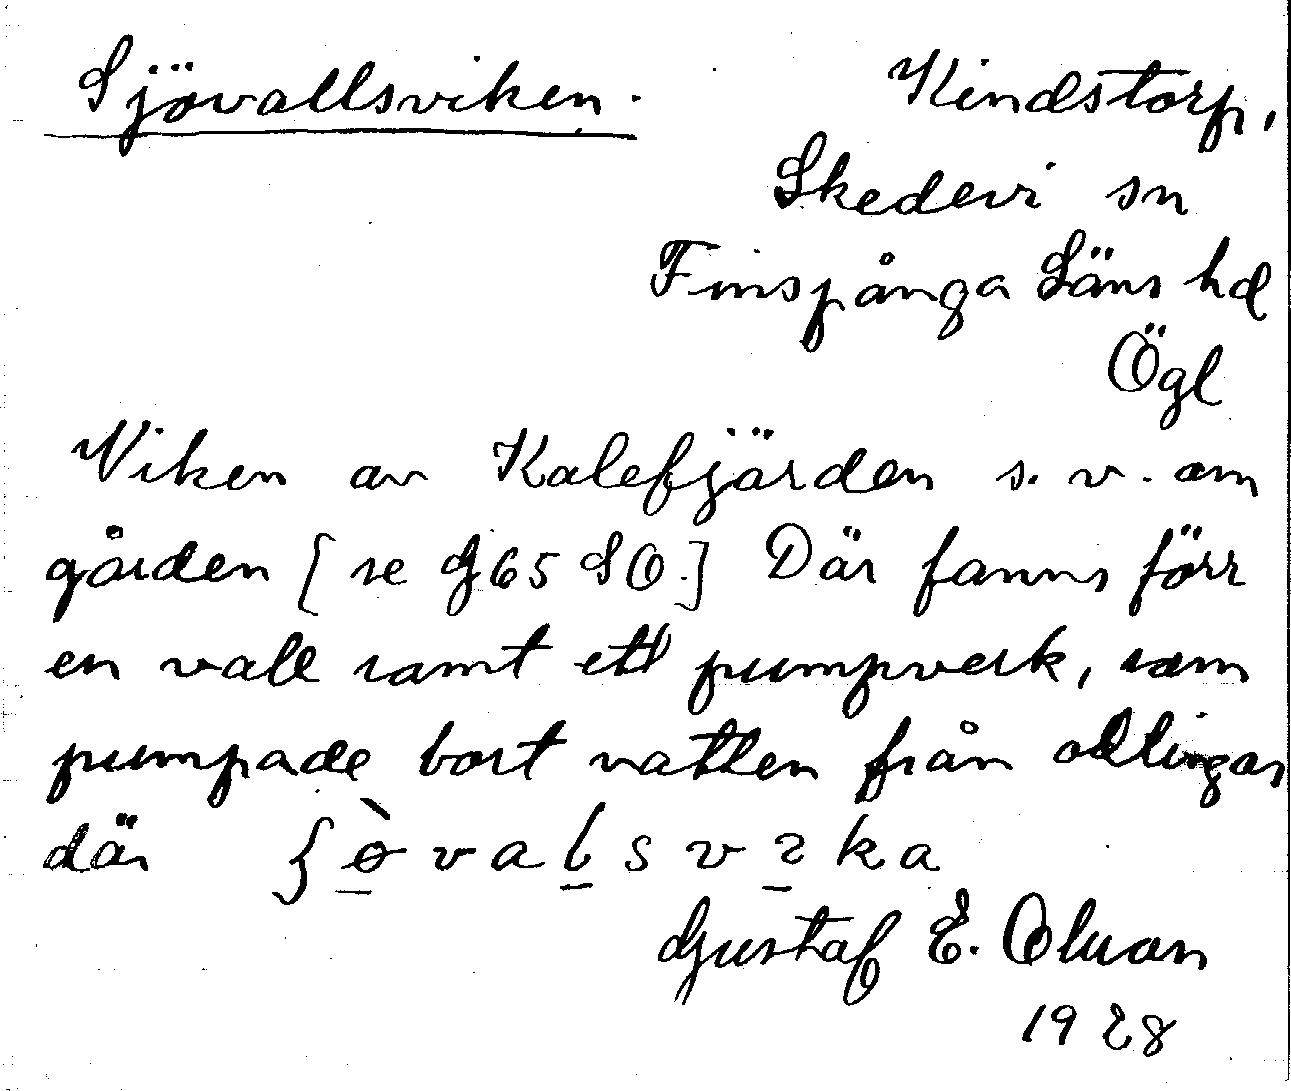 Sjövallsviken. Kindstorp,
Skedevi sn
Finspånga Läns hd
Ögl
Viken av Kalefjärden s. v. om
gården [se G65 SO.] Där fanns förr
en vall samt ett pumpverk, som
pumpade bort vatten från odlingar
där ʃø̀valsvika
Gustaf E. Olsson
1928